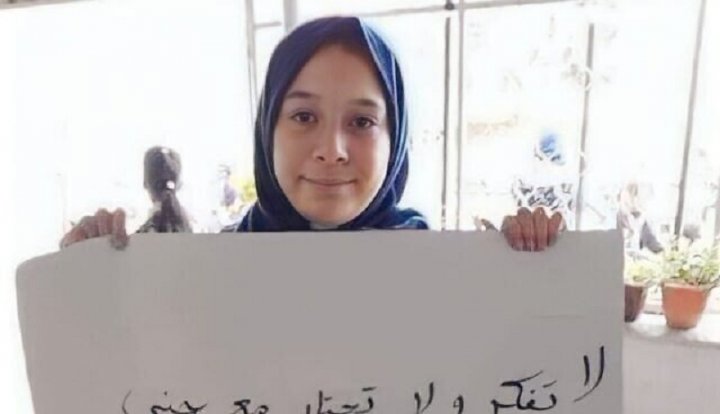 لا تفكر و لا تحتار مع